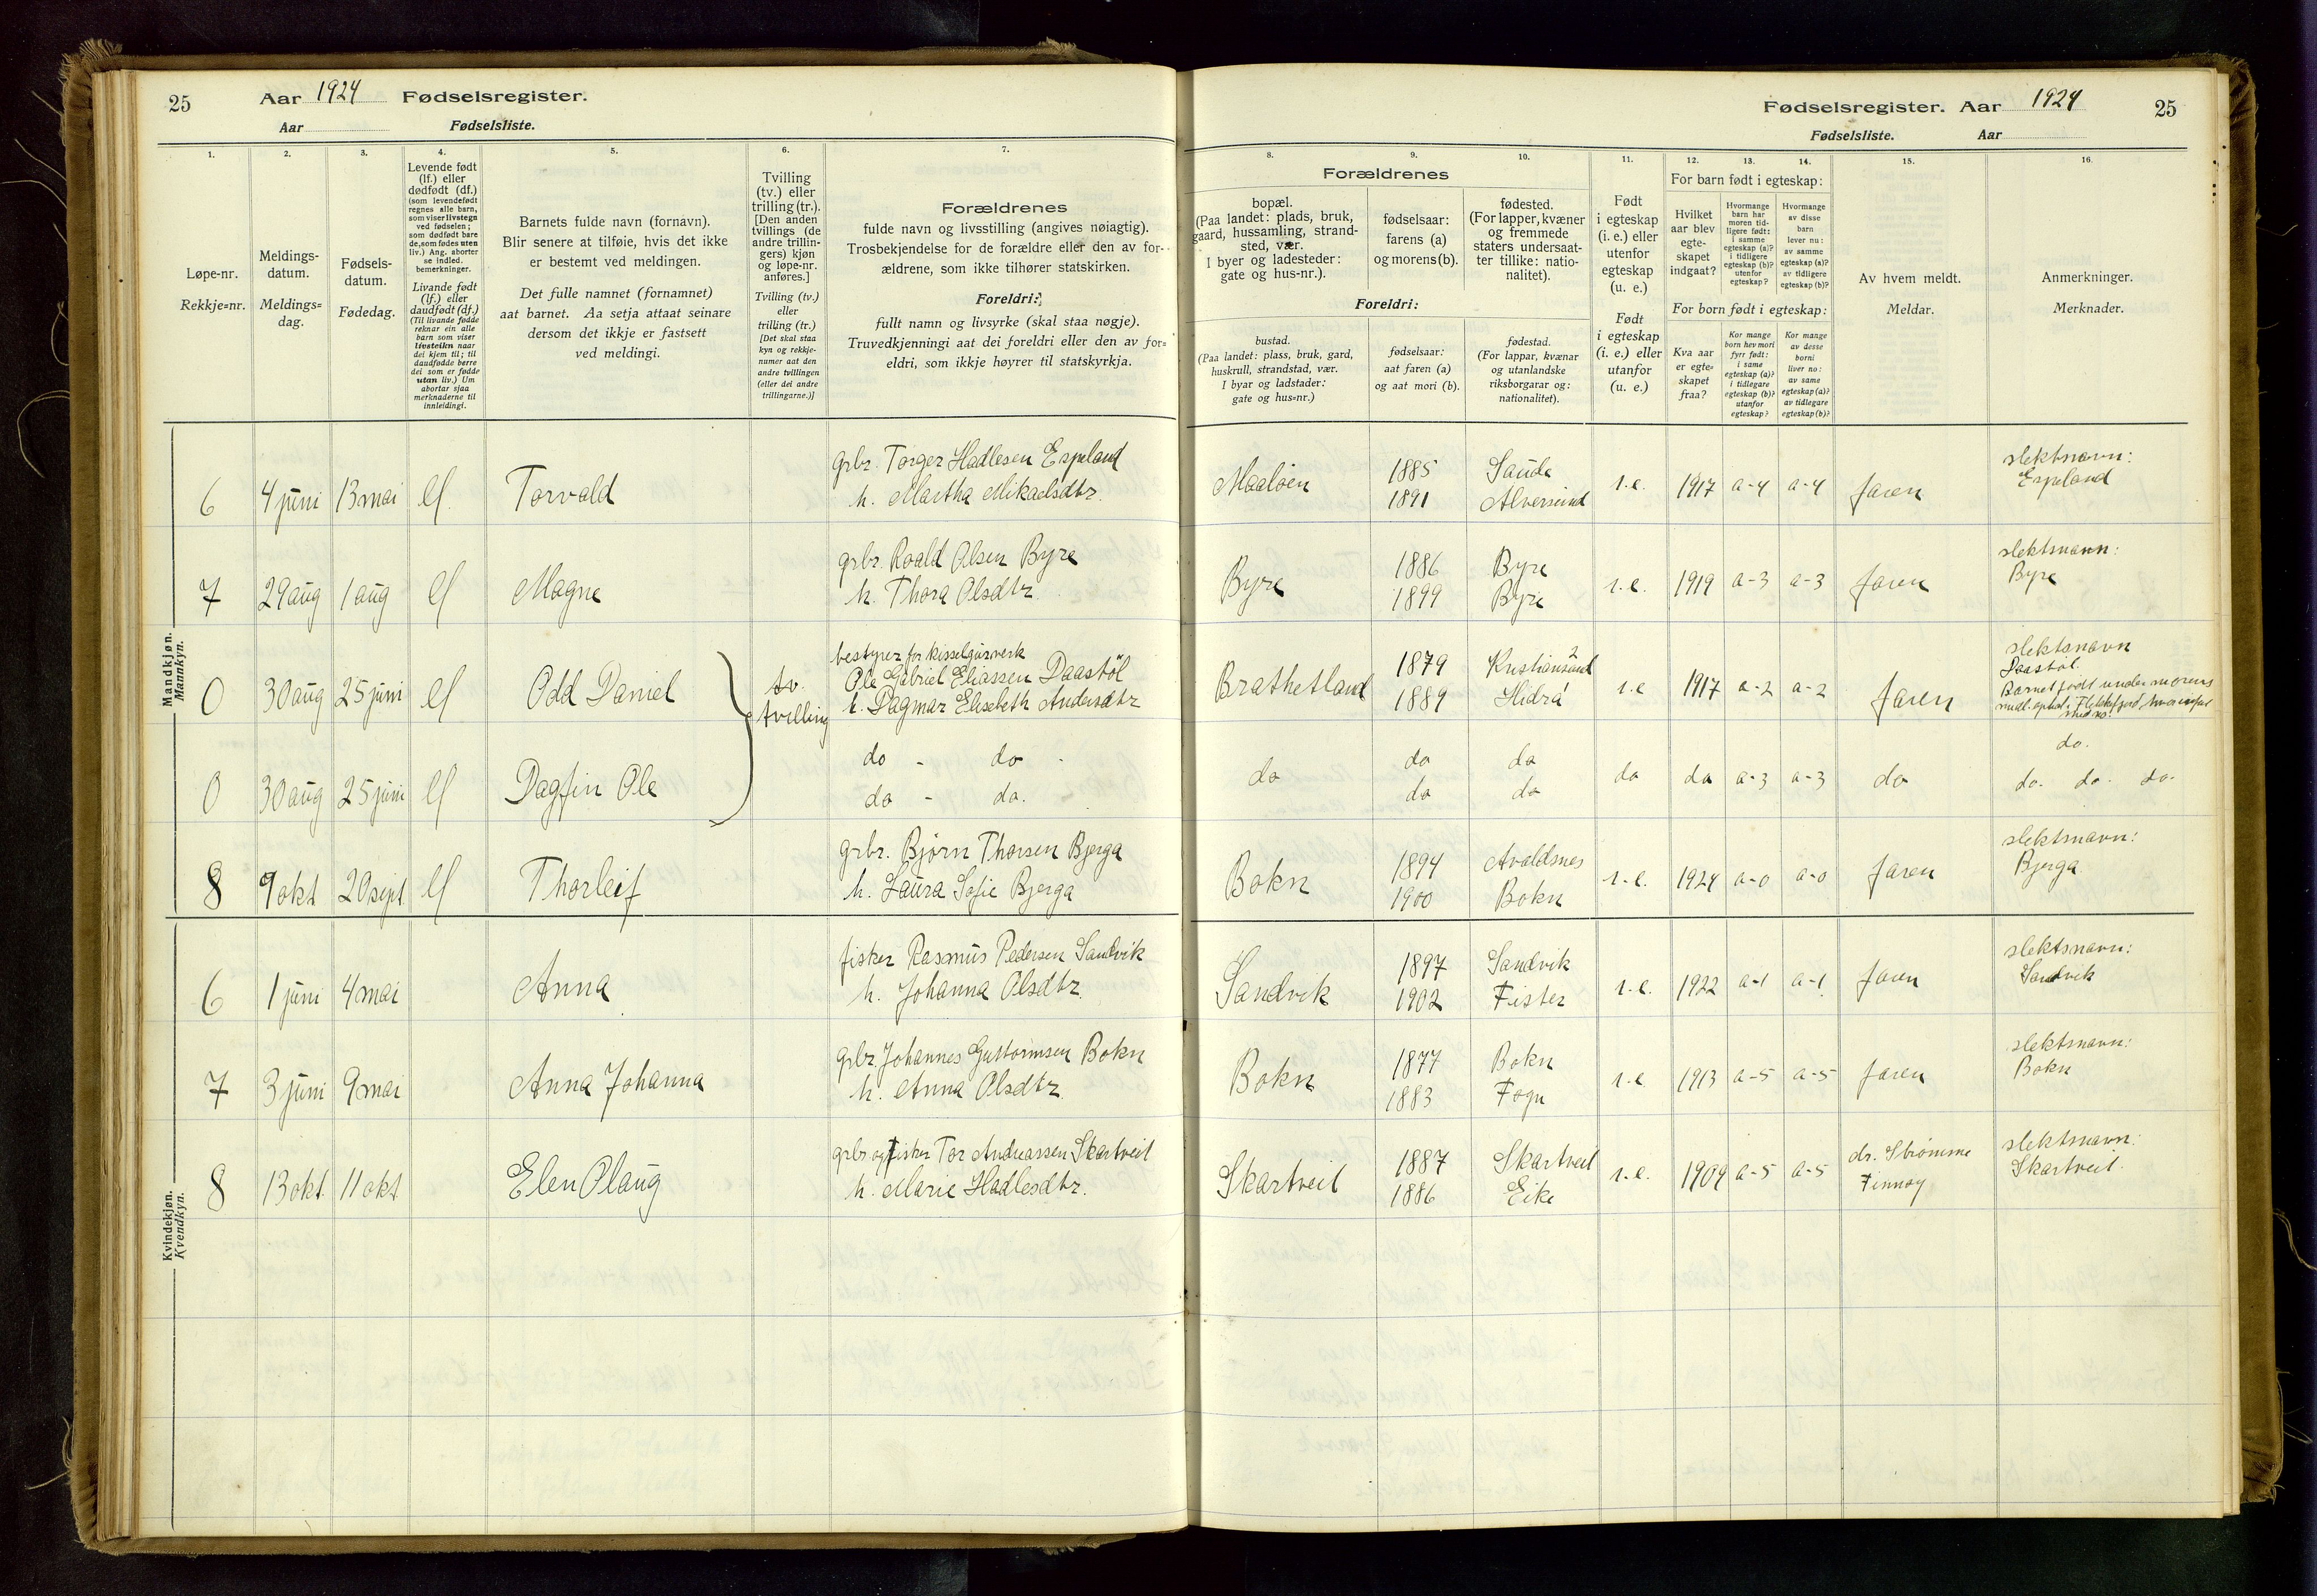 25 Aar 1924 Fødselsregister.
Aar Fødselsliste.
Fødselsregister. Aar 1924 25
Fødselsliste. Aar
1. 2. 3. 4. 5. 6. 7.
Løpe-nr.
Rekkje=nr.
Meldings-
datum.
Meldings=
dag.
Fødsels-
datum.
Fødedag.
Levende født
(lf.) eller
dødfødt (df.)
(som levendefødt
regnes alle barn,
som viser livstegn
ved fødselen;
som dødfødt bare
de, som fødes uten
liv.) Ang. aborter
se indled.
bemerkninger.
Livande født
(lf.) eller
daudfødt (df.)
(Til livande fødde
reknar ein alle
barn som viser
livsteikn naar
dei kjem til; til
daudfødde berre
dei som er fødde
utan liv.) Um
abortar sjaa
merknaderne til
innleidingi.
Barnets fulde navn (fornavn).
Blir senere at tilføie, hvis det ikke
er bestemt ved meldingen.
Det fulle namnet (fornamnet)
aat barnet. Aa setja attaat seinare
dersom det ikkje er fastsett
ved meldingi.
Tvilling
(tv.) eller
trilling (tr.).
[Den anden
tvillings (de
andre trillin-
gers) kjøn
og løpe-nr.
anføres.]
Tvilling (tv.)
eller
trilling (tr.)
[Det skal staa
kyn og rekkje-
numer aat den
andre tvillingen
(eller dei andre
trillingarne.)]
Forældrenes
fulde navn og livsstilling (angives nøiagtig).
Trosbekjendelse for de forældre eller den av for-
ældrene, som ikke tilhører statskirken.
Foreldri:
fullt namn og livsyrke (skal staa nøgje).
Truvedkjenningi aat dei foreldri eller den av for=
eldri, som ikkje høyrer til statskyrkja.
8. 9. 10. 11. 12. 13. 14. 15. 16.
Forældrenes
bopæl.
(Paa landet: plads, bruk,
gaard, hussamling, strand-
sted, vær.
I byer og ladesteder:
gate og hus-nr.).
fødselsaar:
farens (a)
og morens (b).
fødested.
(For lapper, kvæner
og fremmede
staters undersaat-
ter tillike: natio-
nalitet).
Foreldri:
bustad.
(Paa landet: plass, bruk, gard,
huskrull, strandstad, vær.
I byar og ladstader:
gate og hus=nr.)
fødselsaar:
aat faren (a)
og aat mori (b).
fødestad.
(For lappar, kvænar
og utanlandske
riksborgarar og:
nationalitet).
Født
i egteskap
(i. e.) eller
utenfor
egteskap
(u. e.)
Født
i egteskap
(i. e.) eller
utanfor
(u. e.)
For barn født i egteskap:
Hvilket
aar blev
egte-
skapet
indgaat?
Hvormange
barn har
moren tid-
ligere født:
i samme
egteskap (a)?
i tidligere
egteskap (b)?
utenfor
egteskap?
Hvormange
av disse
barn
lever nu:
av samme
egteskap (a)?
av tidligere
egteskap (b)?
For born født i egteskap:
Kva aar
er egte=
skapet
fraa?
Kor mange
born hev mori
fyrr født:
i same
egteskap (a)?
i tidlegare
egteskap (b)?
utanfor
egteskap?
Kor mange
av desse
borni
liver no:
av same
egteskap (a)?
av tidlegare
egteskap (b)?
Av hvem meldt.
Meldar.
Anmerkninger.
Merknader.
Mandkjøn.
Mannkyn.
6 4 juni 13 mai lf. Torvald
grbr. Torger Hadlesen Espeland
h. Martha Mikaelsdtr.
Maaløen 1885 Sauda
1891 Alversund
i.e. 1917 a-4 a-4 faren
slektsnavn:
Espeland
7 29 aug 1 aug lf Magne
grbr. Roald Olsen Byre
h. Thora Olsdtr.
Byre 1886 Byre
1899 Byre
i.e. 1919 a-3 a-3 faren
slektsnavn:
Byre
0 30 aug 25 juni lf Odd Daniel
tv.
tvilling
bestyrer for kisselgurverk
Ole Gabriel Eliassen Daastöl
h. Dagmar Elisebeth Andersdtr
Brathetland 1879 Kristiansand
1889 Hidra
i.e 1917 a-2 a-2 faren
slektsnavn
Daastöl.
Barnet født under morens
0 30 aug 25 juni lf Dagfin Ole
do - do -
do - do.
do do do
do do
do do a-3 a-3 do
do.
do. do. do.
8 9 okt 20 sept. lf Thorleif
grbr. Bjørn Thorsen Bjerga
h. Laura Sofie Bjerga
Bokn 1894 Avaldsnes
1900 Bokn
i.e. 1924 a-0 a-0 faren
slektsnavn:
Bjerga
Kvindekjøn.
Kvendkyn.
6 1 juni 4 mai Anna
fisker Rasmus Pedersen Sandvik
h. Johanna Olsdtr.
Sandvik 1897 Sandvik
1902 Fister
i.e. 1922 a-1 a-1 faren
slektsnavn:
Sandvik
7 3 juni 9 mai Anna Johanna
grbr. Johannes Guttormsen Bokn
h. Anna Olsdtr.
Bokn 1877 Bokn
1883 Fogn
i.e 1913 a-5 a-5 faren
slektsnavn:
Bokn
8 13 okt. 11 okt Elen Olaug
grbr og fisker Tor Andreassen Skartveit
h. Marie Hadlesdtr.
Skartveit 1887 Skartveit
1886 Eike
i.e. 1909 a-5 a-5
dr. Strømme
Finnøy
slektsnavn:
Skartveit.